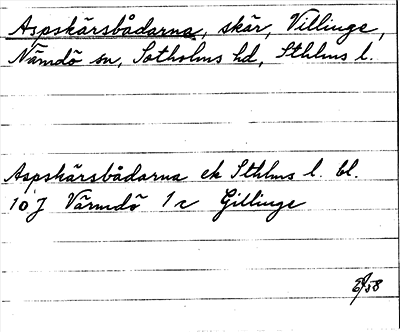 Aspskärsbådarna, skär, Villinge,
Nämdö sn, Sotholms hd, Sthlms l.
Aspskärsbådarna ek Sthlms l. bl.
10 J Värmdö 1 c Gillinge